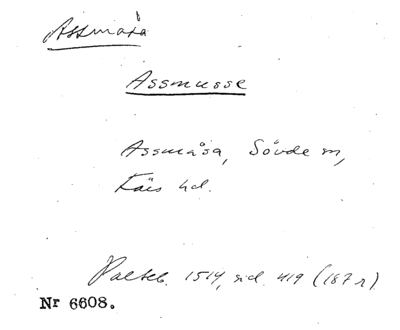 Assmåsa
Assmusse
Assmåsa, Sövde sn,
Färs hd.
Palteb. 1514, sid. 419 (187 r)
Nr 6608.